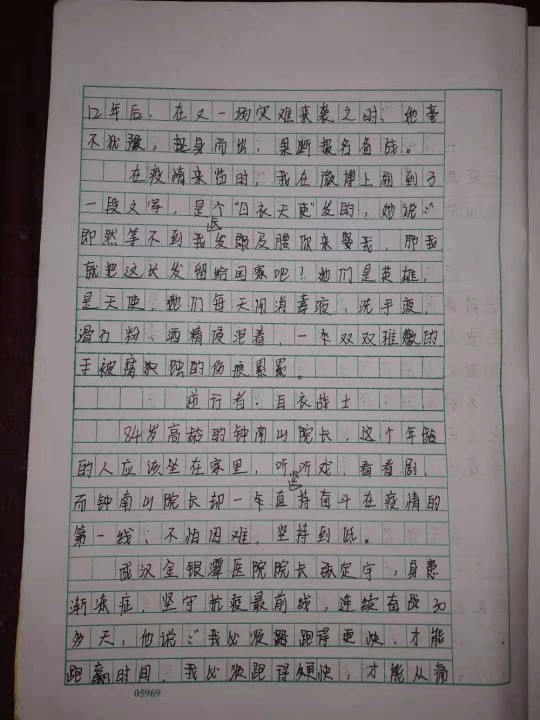 12年后，在又一场灾难来袭之时，他毫
不犹豫，挺身而出，果断报名备战。
在疫情来临时，我在微博上刷到了
一段文字，是个“白衣天使”发的，她说：“
即然等不到我发长及腰你来娶我，那我
就把这长发留给国家吧！她们是英雄，
是天使，她们每天用消毒液，洗手液，
滑石粉、酒精浸泡着，一双双稚嫩的
手被腐蚀的伤痕累累。
逆行者·白衣战士
84岁高龄的钟南山院长，这个年龄
的人应该坐在家里，听听戏，看看剧，
而钟南山院长却一直坚持奋斗在疫情的
第一线、不怕困难，坚持到底。
武汉金银潭医院院长张定宇，身患
渐冻症，坚守抗疫最前线，连续奋战30
多天，他说：“我必须跑得更快，才能
跑赢时间，我必须跑得更快，才能从病
05969